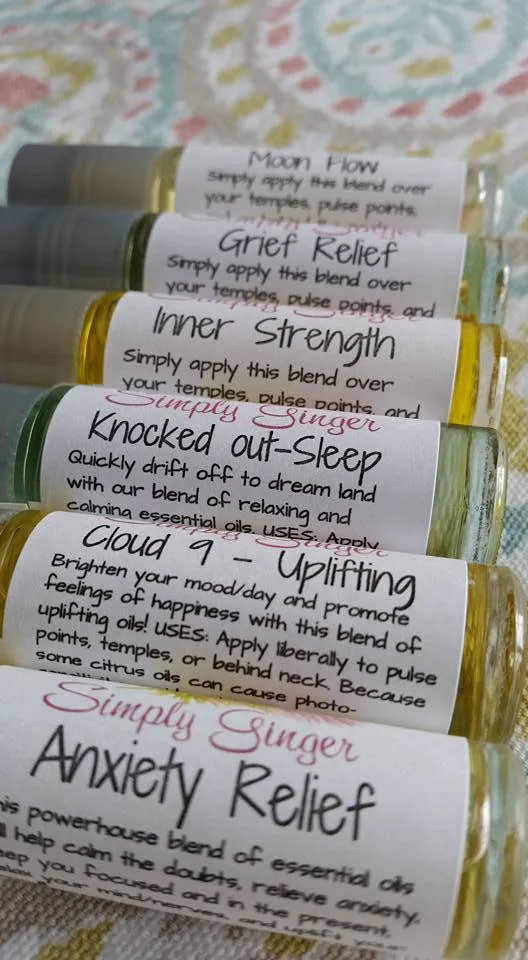 Moon Flow
Simply apply this blend over
your temples, pulse points,
Simply Singer
Grief Relief
Simply apply this blend over
your temples, pulse points, and
Simply Singer
Inner Strength
Simply apply this blend over
your temples, pulse points, and
Simply Singer
Knocked out-Sleep
Quickly drift off to dream land
with our blend of relaxing and
calming essential oils. USES: Apply
Simply Singer
Cloud 9 - Uplifting
Brighten your mood/day and promote
feelings of happiness with this blend of
uplifting oils! USES: Apply liberally to pulse
points, temples, or behind neck. Because
some citrus oils can cause photo-
Simply Singer
Anxiety Relief
his powerhouse blend of essential oils
ll help calm the doubts, relieve anxiety,
eep you focused and in the present.
elax your mind/nerves, and uplift your